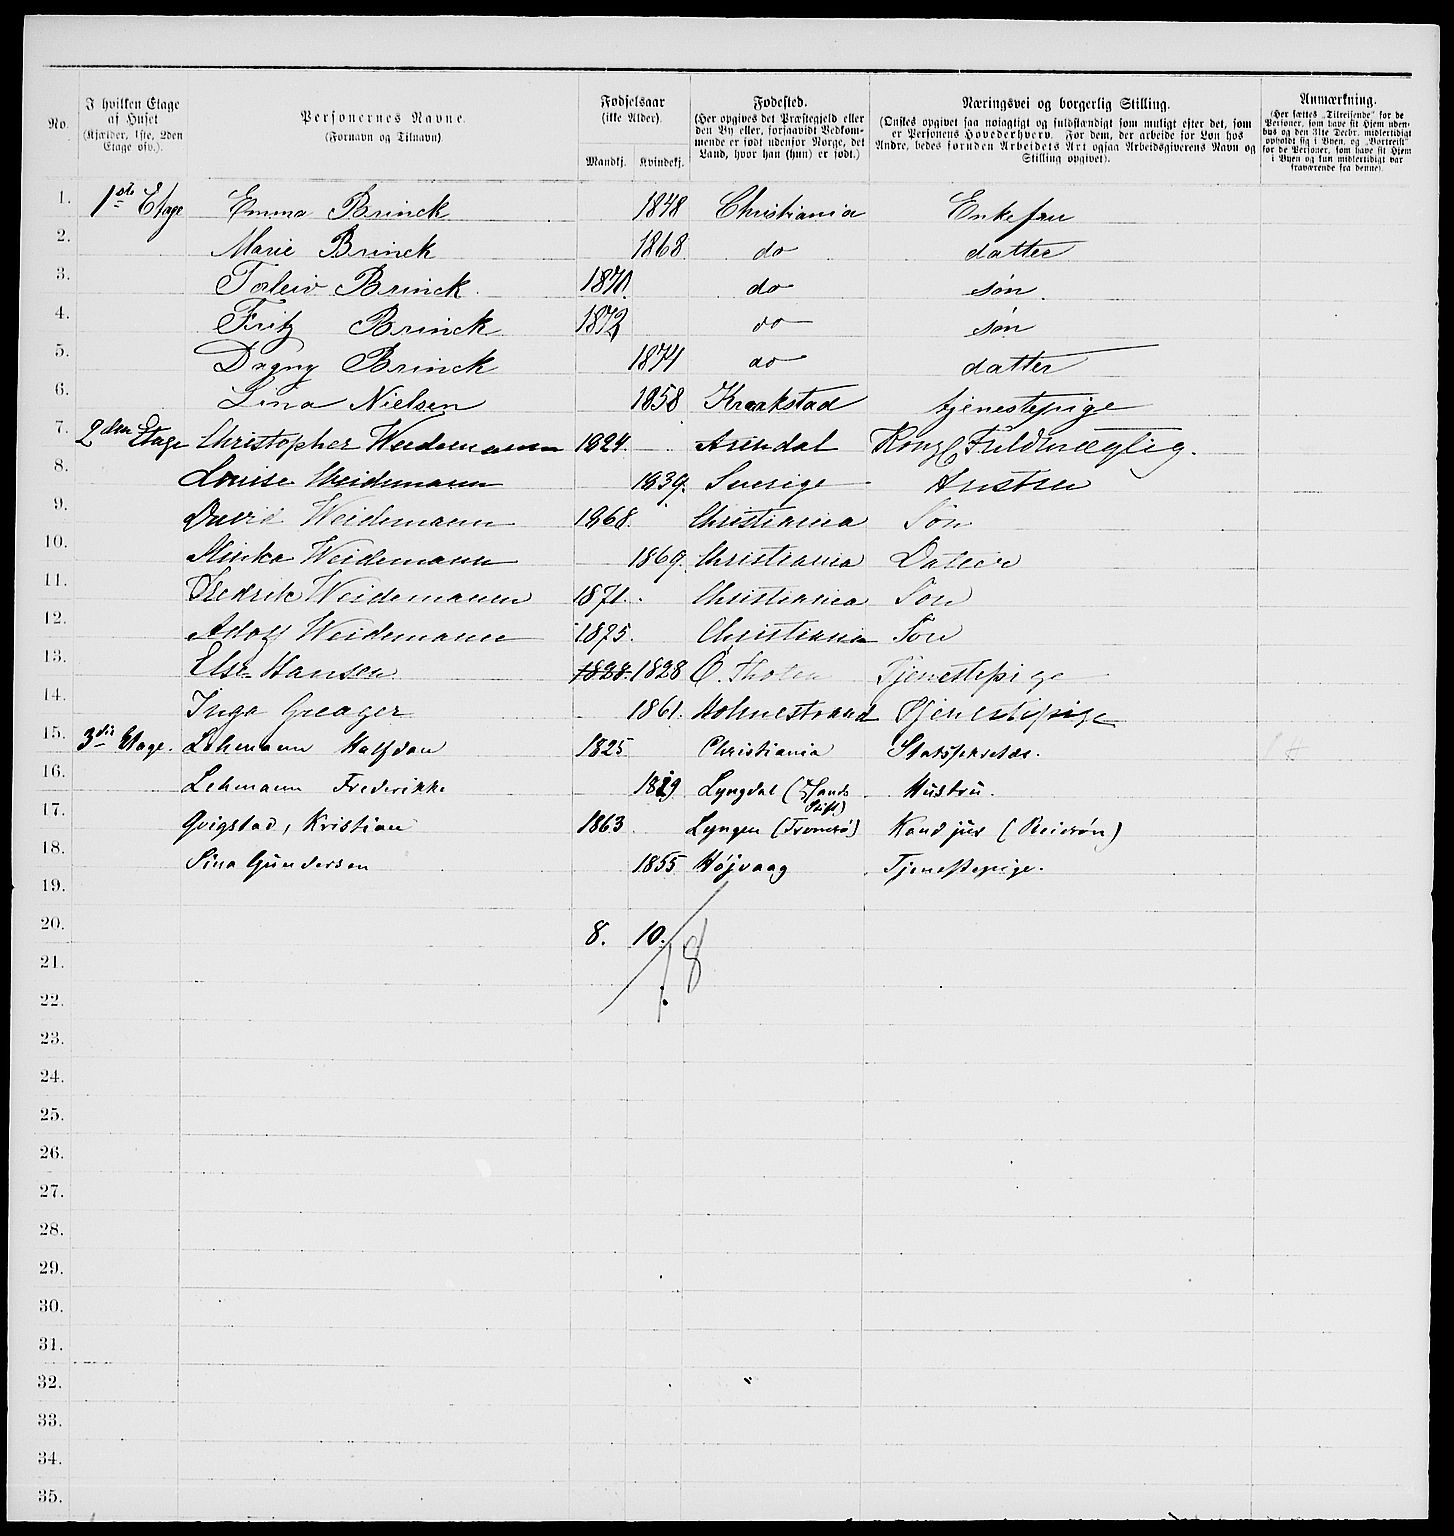 No.
I hvilken Etage
af Huset
(Kjælder, 1ste, 2den
Etage osv.).
Personernes Navne.
(Fornavn og Tilnavn)
Fødselsaar
(ikke Alder).
Mandkj. Kvindekj.
Fødested.
(Her opgives det Præstegjeld eller
den By eller, forsaavidt Vedkom-
mende er født udenfor Norge, det
Land, hvor han (hun) er født.)
Næringsvei og borgerlig Stilling.
(Ønskes opgivet saa nøiagtigt og fuldstændigt som muligt efter det, som
er Personens Hovederhverv. For dem, der arbeide for Løn hos
Andre, bedes foruden Arbeidets Art ogsaa Arbeidsgiverens Navn og
Stilling opgivet).
Anmærkning.
(Her sættes „Tilreisende“ for de
Personer, som have sit Hjem uden-
bys og den 31te Decbr. midlertidigt
opholdt sig i Byen, og „Bortreist“
for de Personer, som have sit Hjem
i Byen og kun midlertidigt var
fraværende fra denne).
1. 1ste Etage Emma Brinck 1848 Christiania Enkefru
2. Marie Brinck 1868 do datter
3. Torleiv Brinck 1870 do søn
4. Fritz Brinck 1872 do søn
5. Dagny Brinck 1874 do datter
6. Lina Nielsen 1858 Kraakstad tjenestepige
7. 2den Etage Christopher Weidemann 1824. Arendal Kongl Fuldmægtig.
8. Louise Weidemann 1839. Sverige Hustru
9. David Weidemann 1868. Christiania Søn
10. Minka Weidemann 1869. Christiania Datter
11. Fredrik Weidemann 1871. Christiania Søn
12. Adolf Weidemann 1875. Christiania Søn
13. Else Hansen 1828. 1828 Ø. Thoten Tjenestepige
14. Inga Greager 1861. Holmestrand Tjenestepige
15. 3die Etage. Lehmann Halfdan 1825 Christiania Statssekretær.
16. Lehmann Frederikke 1829 Lyngdal ( Stift) Hustru.
17. Qvigstad, Kristian 1863 Lyngen (Tromsø) Kand jur
18. Sina Gundersen 1855 Højvaag Tjenestepige.
19.
20. 8. 10.
18
21.
22.
23.
24.
25.
26.
27.
28.
29.
30.
31.
32.
33.
34.
35.